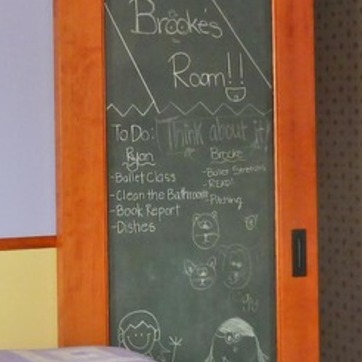 Brooke's
Room!!
To Do: Think about it!
Ryan
-Ballet Class
-Clean the Bathroom
-Book Report
-Dishes
Brooke
-Ballet Stretches
-READ!
-Pitching